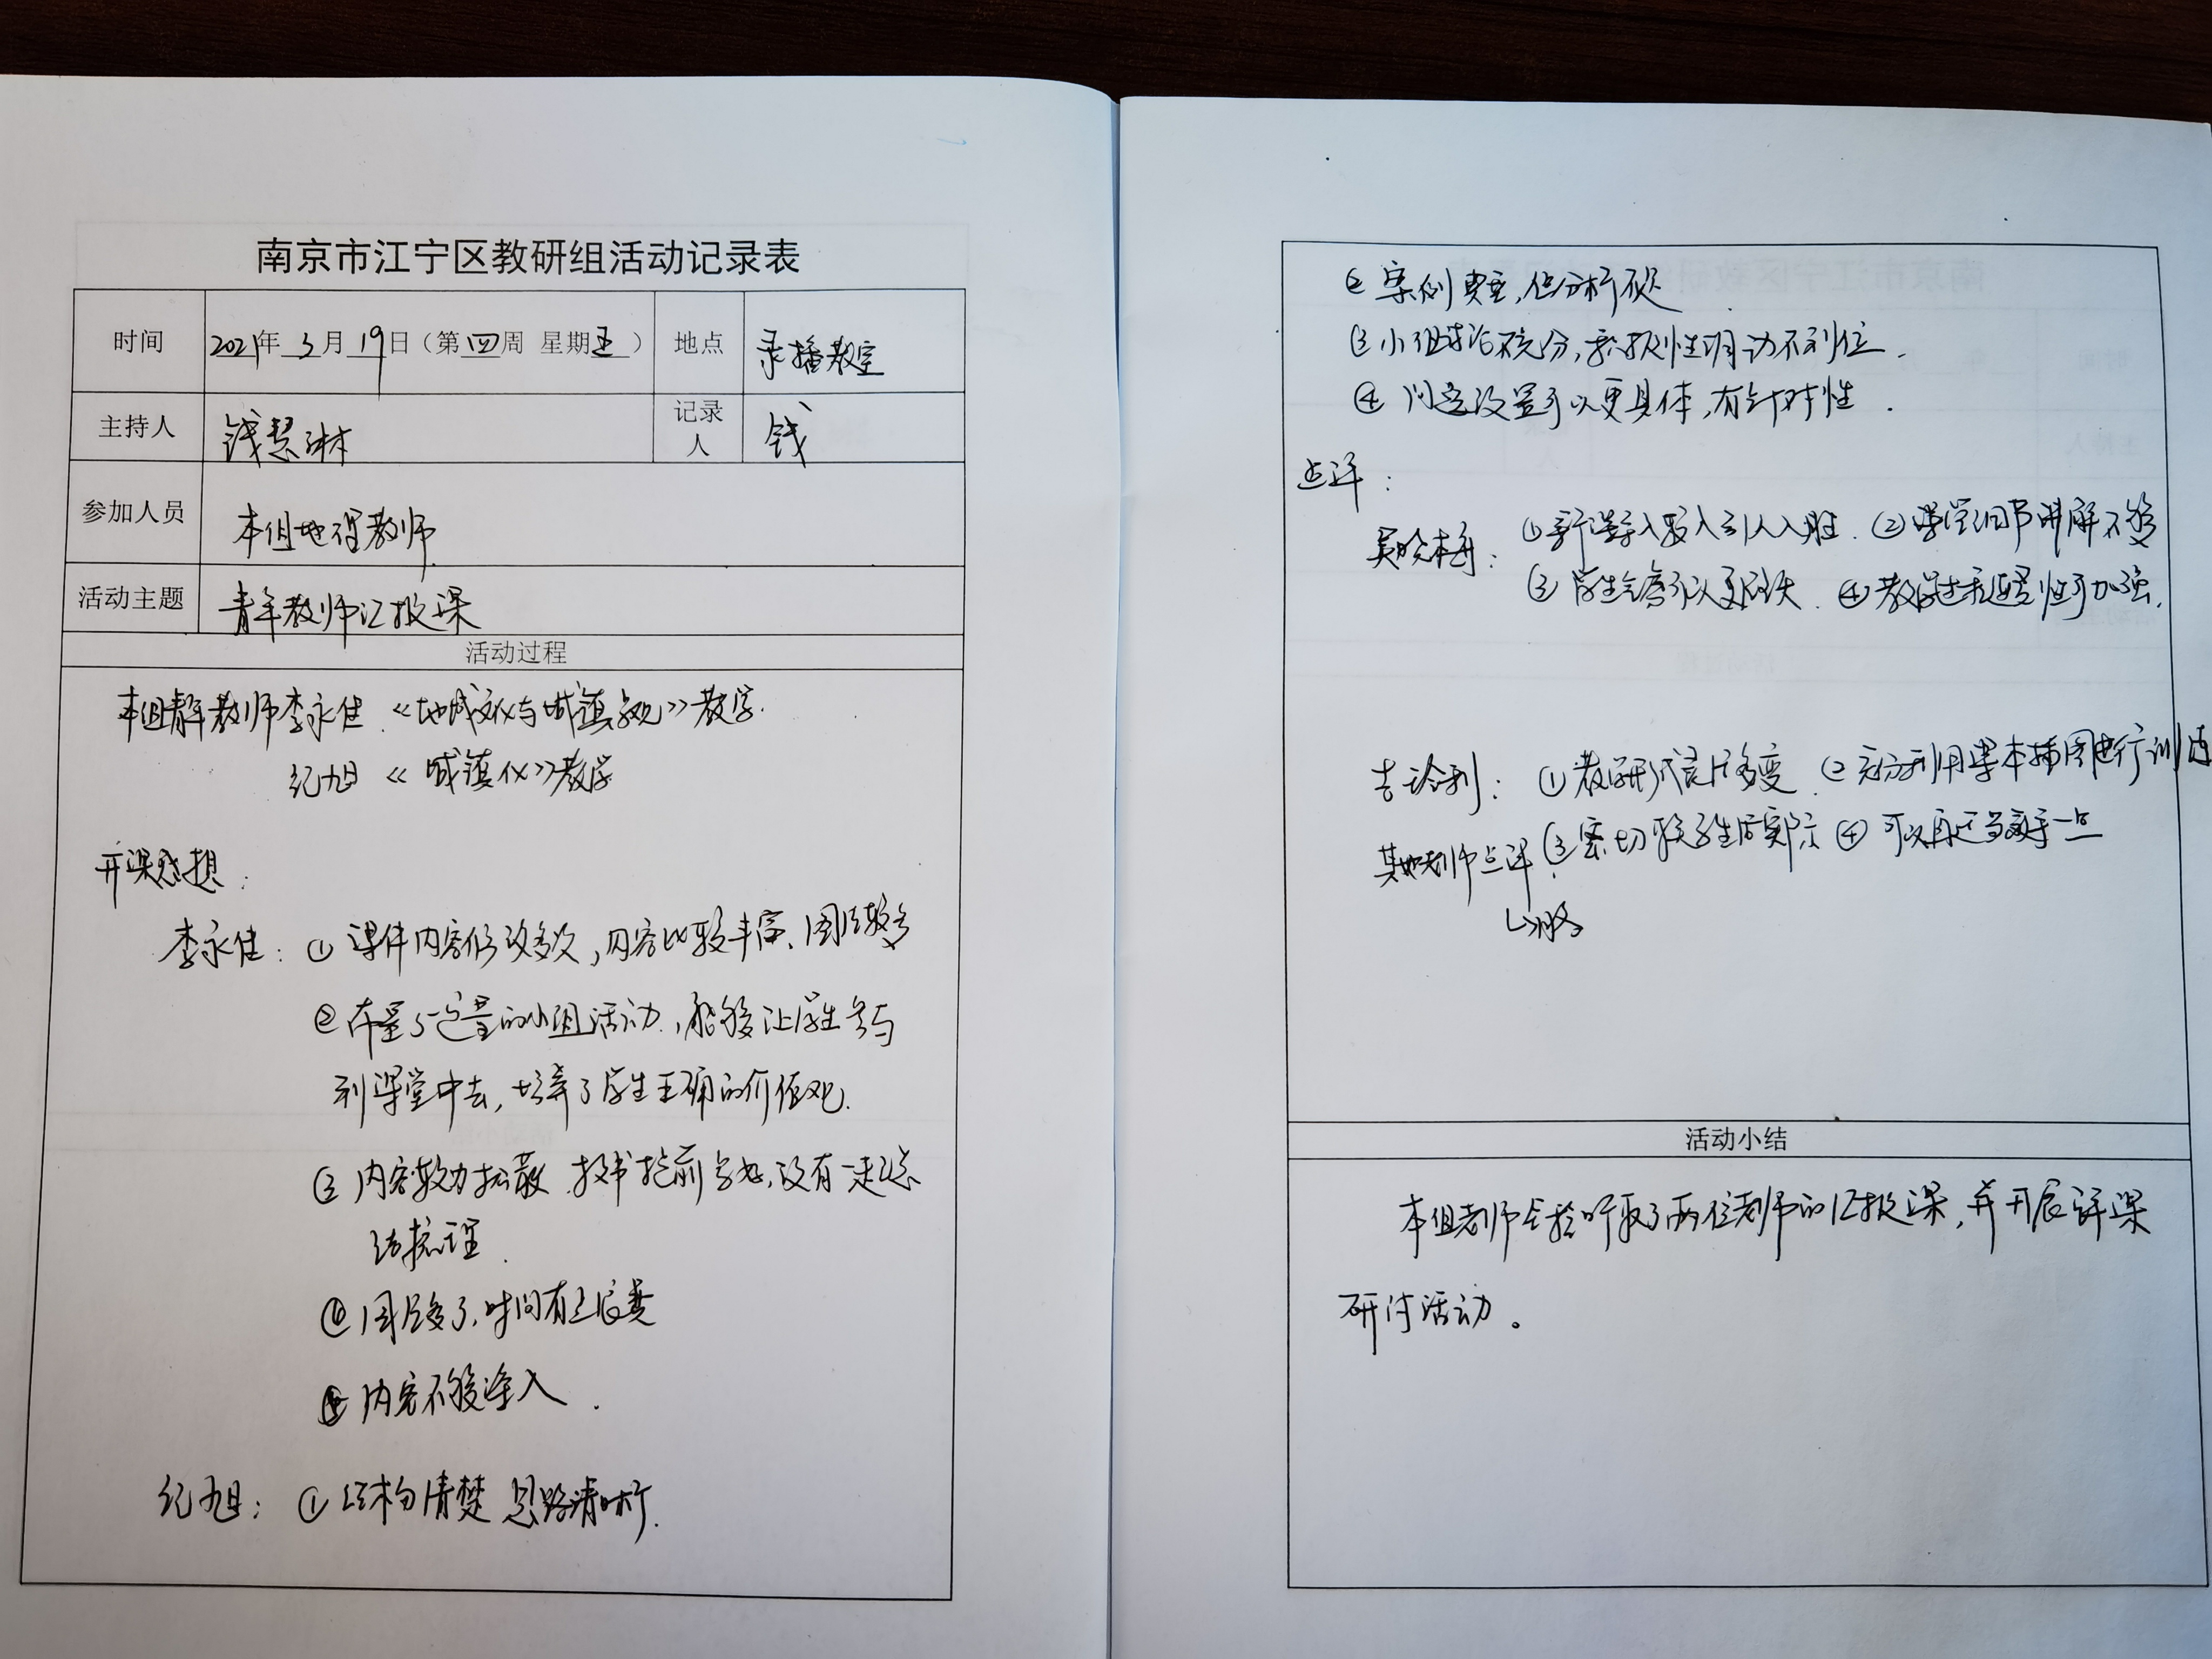 南京市江宁区教研组活动记录表
时间 2021年 3月 19日（第四周 星期五） 地点 录播教室
主持人 钱慧琳 记录人 钱
参加人员 本组地理教师
活动主题 青年教师汇报课
活动过程
本组青年教师李永佳《地域文化与城镇景观》教学.
纪旭《城镇化》教学
开课感想：
李永佳：① 课件内容修改多次，内容比较丰富、图片较多
② 布置了一定量的小组活动，能够让学生参与
到课堂中去，培养了学生正确的价值观.
③ 内容较为松散 板书提前写好，没有一定总
结梳理.
④ 图片多了，时间有点浪费
内容不够深入.
纪旭：① 结构清楚 思路清晰.
② 案例典型，但分析不足
③ 小组讨论不充分，积极性调动不到位.
④ 问题设置可以更具体，有针对性.
点评：
① 新课导入较入引人入胜. ② 课堂细节讲解不够
③ 学生容可以更放大. ④ 教学过程逻辑性可加强.
① 教学形式灵活多变 ② 充分利用课本插图进行训练
其他老师点评 ③ 密切联系生活实际 ④ 可以再适当高于一点
↳略
活动小结
本组老师全体听取了两位老师的汇报课，并开展评课
研讨活动。